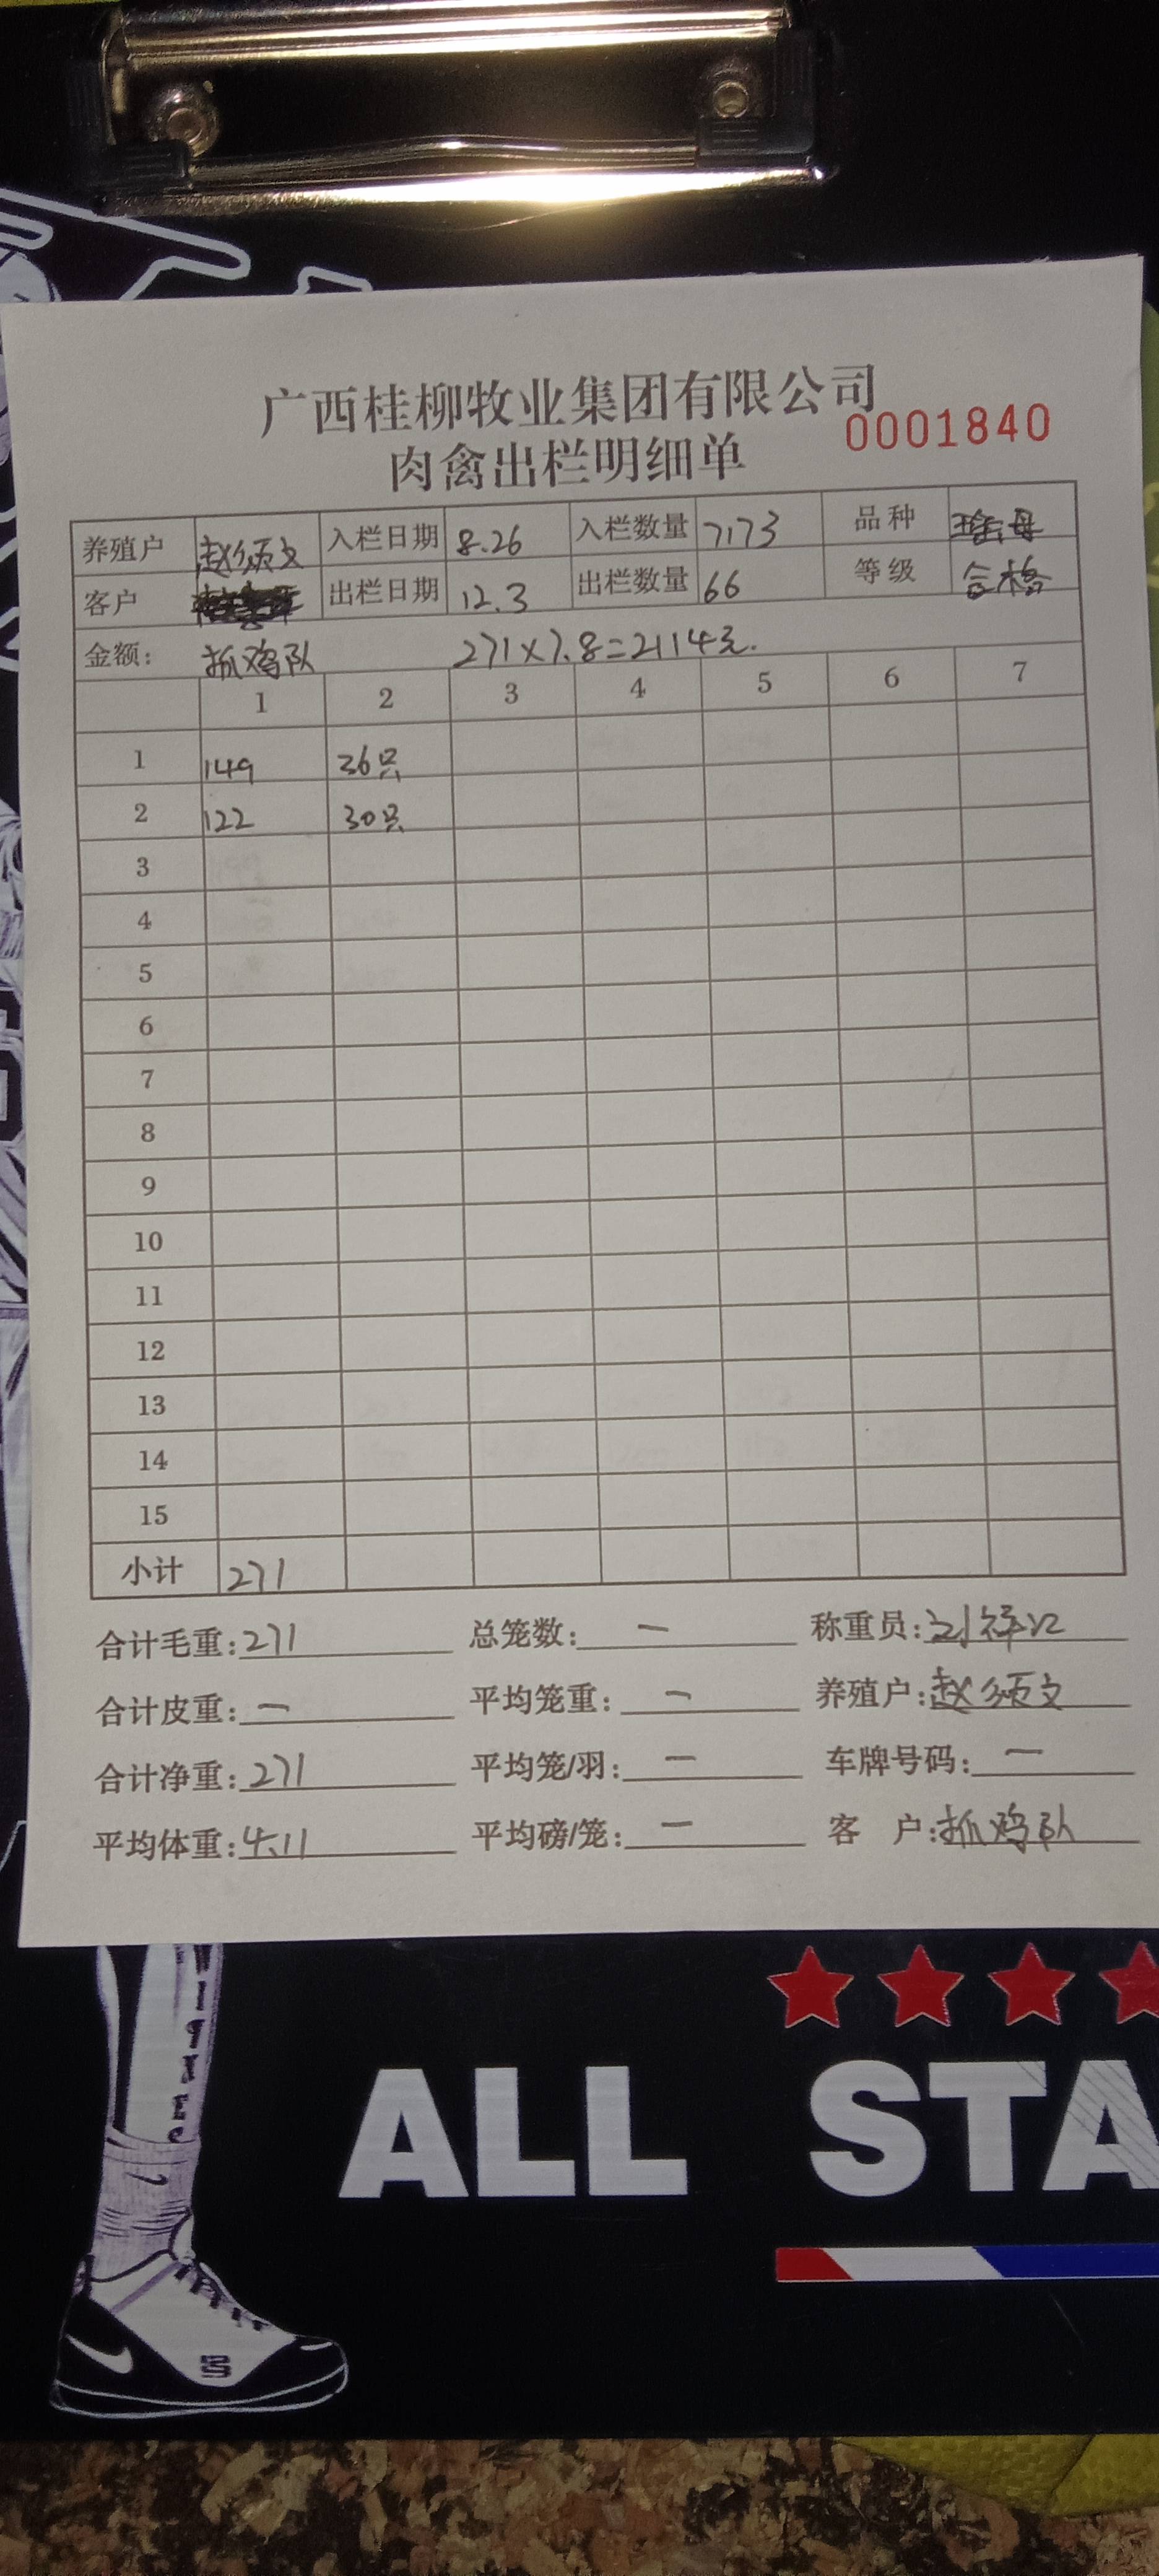 广西桂柳牧业集团有限公司
0001840
肉禽出栏明细单
养殖户 赵颂文 入栏日期 8.26 入栏数量 7173 品种 母
客户 出栏日期 12.3 出栏数量 66 等级 合格
金额: 抓鸡队 271×7.8=2114元.
1 2 3 4 5 6 7
1 149 36只
2 122 30只
3
4
5
6
7
8
9
10
11
12
13
14
15
小计 271
合计毛重:271 总笼数:一 称重员:刘祥江
合计皮重:一 平均笼重:一 养殖户:赵颂文
合计净重:271 平均笼/羽:一 车牌号码:一
平均体重:4.11 平均磅/笼:一 客 户:抓鸡队
ALL STA